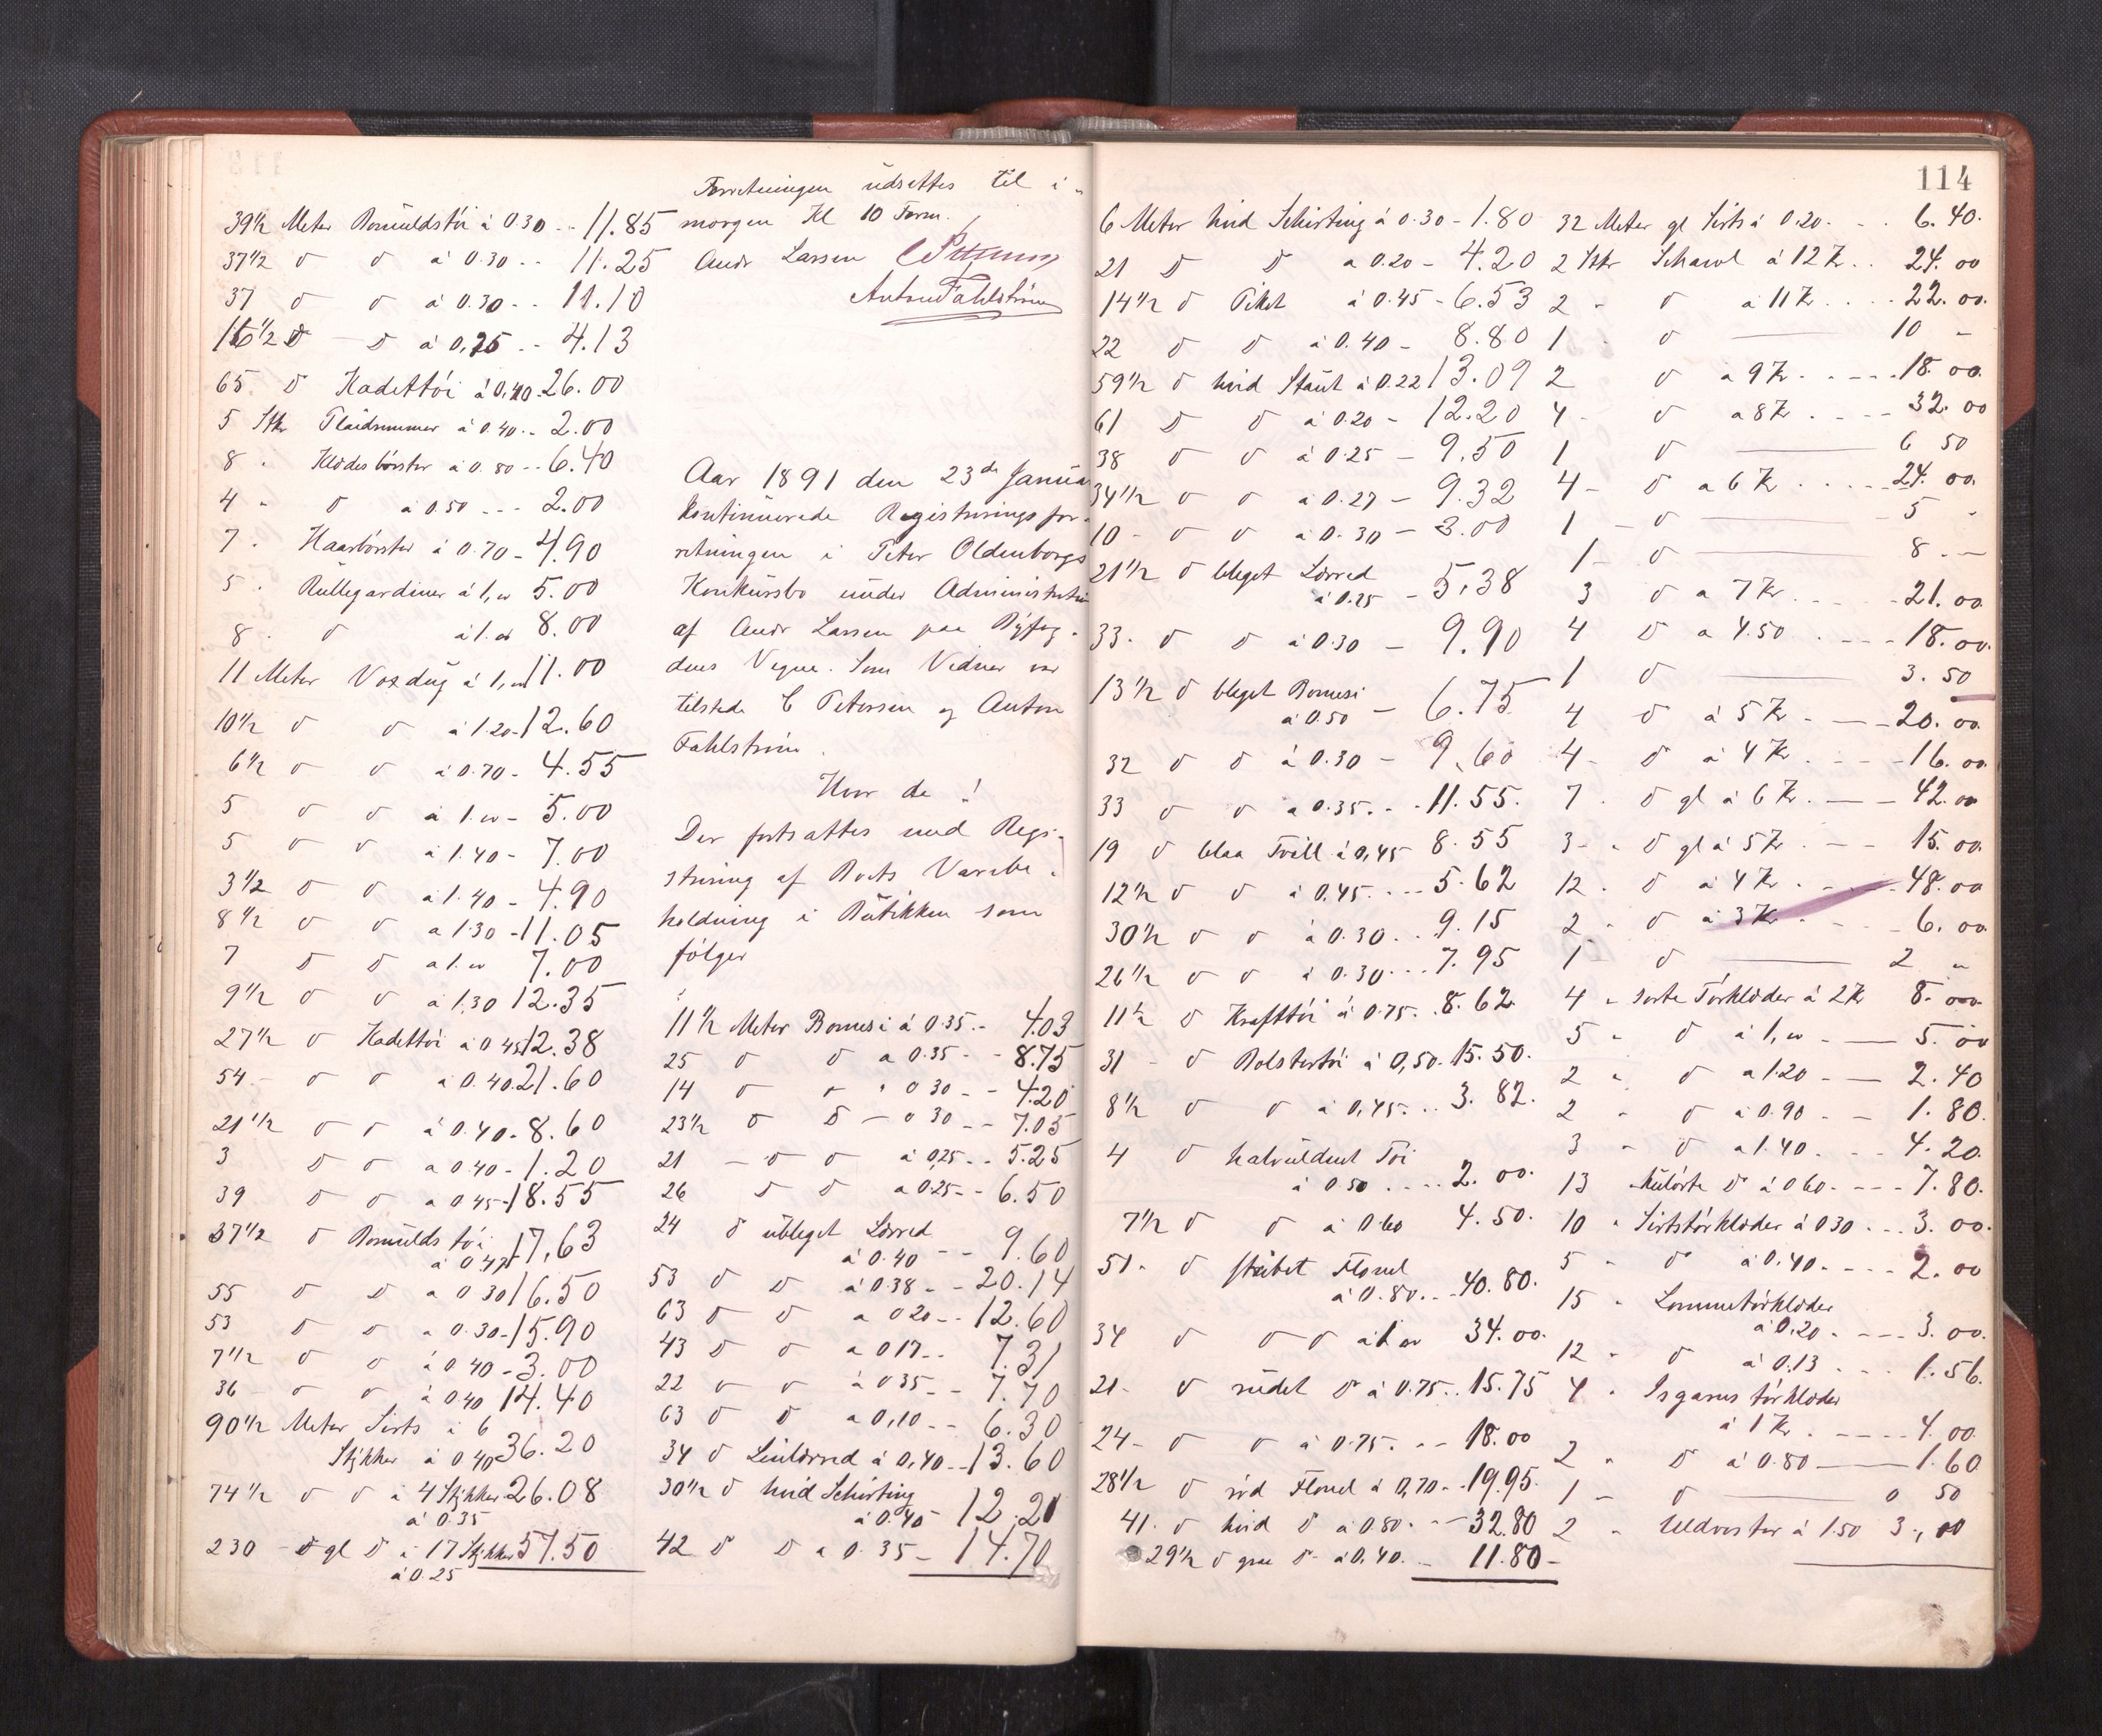 39½ Meter Bomuldstöi à 0.30 .. 11.85
37½ d d à 0.30 .. 11.25
37 d d à 0.30 .. 11.10
16½ d - d à 0,25 .. 4.13
65 d Kadettöi à 0,40 . 26.00
5 Stkr Plaidremmer à 0.40 .. 2.00
8 . Klædesbörster à 0.80 .. 6.40
4 " d à 0.50 --- 2.00
7 . Haarbörster à 0.70 - 4.90
5 . Rullegardiner à 1,00 5.00
8 . d à 1.00 8.00
11 Meter Voxdug à 1,00 11.00
10½ d d à 1.20 - 12.60
6½ d d à 0.70 - 4.55
5 d d à 1.00 - 5.00
5 d d à 1.40 - 7.00
3½ d d à 1.40 - 4.90
8½ d d a 1.30 - 11.05
7 d d a 1.00 7.00
9½ d d à 1.30 12.35
27½ d Kadettöi à 0 45 12.38
54 - d d à 0.40 . 21.60
21½ d d à 0.40 . 8.60
3 d d a 0.40 - 1.20
39 d d a 0.45 - 18.55
37½ d Bomulds töi
à 0.47 17,63
55 d d a 0 30 16.50
53 d d a 0.30 - 15.90
7½ d d à 0 40 - 3.00
36 - d d à 0.40 14.40
90½ Meter Sirts i 6
Stykker à 0.40 36.20
74½ d d i 4 Stykker 26.08
à 0.35
230 - d gl d i 17 Stykker 57.50
à 0.25
Forretningen udsettes til i-
morgen Kl 10 Form.
Andr Larsen
Anton Fahlström
Aar 1891 den 23de Januar
kontinuerede Registreringsfor-
retningen i Peter Oldenborgs
Konkursbo under Administration
af Andr Larsen paa Byfog-
dens Vegne. Som Vidner var
tilstede C Petersen og Anton
Fahlström.
Hvor da !
Der fortsattes med Regi-
strering af Boets Varebe-
holdning i Butikken som
fölger
11½ Meter Bomesi à 0.35 .- 4.03
25 d d a 0.35 - - 8.75
14 d d " 0 30 - - 4.20
23½ d d - 0 30 -- 7.05
21 - d d à 0,25 .. 5.25
26 d d a 0.25 -- 6.50
24 d ubleget Lærred
à 0.40 -- 9.60
53 d d à 0.38 -- 20.14
63 d d a 0 20 -- 12.60
43 d d a 0 17 .. 7.31
22 d d à 0 35 -- 7.70
63 d d a 0,10 -- 6.30
34 d Linlærred à 0,40 -- 13.60
30½ d hvid Schirting
à 0.40 - 12.20
42 d d a 0.35 - 14.70
114
6 Meter hvid Schirting à 0.30 - 1.80
21 d d a 0.20 - 4.20
14½ d Piket à 0.45 - 6.53
22 d d à 0.40 - 8.80
59½ d hvid Stout à 0.22 13.09
61 d d à 0.20 - 12.20
38 d d à 0.25 - 9.50
34½ d d a 0.27 - 9.32
10 - d d à 0.30 - 3.00
21½ d bleget Lærred
à 0.25 - 5.38
33 . d d à 0.30 - 9.90
13½ d bleget Bomesi
à 0.50 - 6.75
32 d d à 0.30 - 9,60
33 d d a 0.35 . - 11.55.
19 d blaa Tvill à 0,45 8.55
12½ d d à 0.45 . --- 5.62
30½ d d à 0.30 . . 9.15
26½ d d à 0.30 --- 7.95
11½ d Krafttöi à 0.75 .. 8.62
31 - d Bolstertöi à 0,50 - 15.50.
8½ d d à 0,45 . .. 3.82.
4 d halvuldent Töi
à 0.50 .... 2.00.
7½ d d à 0.60 4.50.
51 . d stribet Flonel
à 0.80 .. 40.80.
34 d d d à 1.00 34.00.
21 - d rudet d à 0.75 .. 15.75
24 - d d à 0.75 . -- 18.00
28½ d röd Flonel à 0,70 - 19.95
41 . d hvid d à 0.80 . - 32.80
29½ d graa d - à 0,40 .. 11.80 -
32 Meter gl Sirts à 0.20 . - . 6.40.
2 Stkr Schawl à 12 Kr .. 24.00
2 - d a 11 Kr .... 22.00.
1 . d 10 -
2 d a 9 Kr . --- 18.00.
4 - d a 8 Kr . --- 32.00
1 d 6 50
4 - d a 6 Kr . ---- 24.00.
1 - d 5 -
1 - d 8 . -
3 d a 7 Kr . . . . 21.00.
4 d a 4.50 . --- 18.00.
1 d 3.50
4 d à 5 Kr . -- 20.00.
4 - d à 4 Kr . --- 16.00.
7 . d gl à 6 Kr . -- 42.00
3 - " d gl à 5 Kr . -- 15.00.
12 . d à 4 Kr . ---- 48.00
2 - d à 3 Kr - . -- 6.00
1 - d 2 "
4 " sorte Törklæder à 2 Kr 8.00
5 " d à 1,00 - - 5.00
2 " d a 1.20 - - 2.40
2 " d à 0.90 - - 1.80.
3 " d a 1.40 . . . 4.20.
13 d à 0 60 . --- 7.80.
10 " Sirtstörklæder à 0 30 ... 3.00.
5 " d à 0.40 . --- 2.00
15 " Lommetörklæder
à 0.20 . --- 3.00.
12 " d à 0,13 . - . 1.56.
4 " Isgarns törklæder
à 1 Kr . ---- 4.00
2 " d à 0.80 --- 1.60
1 - d 0 50
2 " Uldvester à 1.50 3.,00